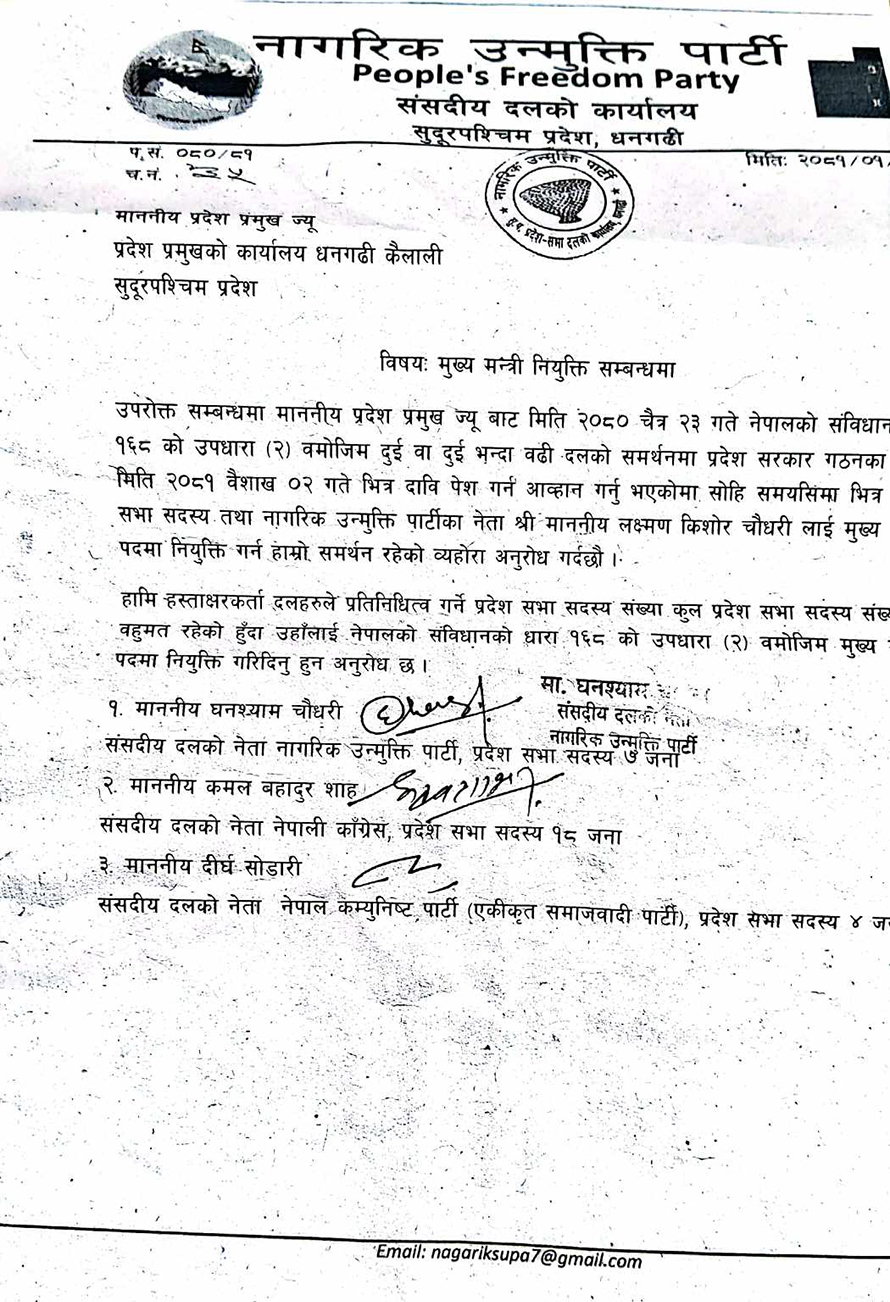 नागरिक उन्मुक्ति पार्टी
People's Freedom Party
संसदीय दलको कार्यालय
सुदूरपश्चिम प्रदेश, धनगढी
प.सं. ०८०/८१
मितिः २०८१/०१/
च.नं. ३५
नागरिक उन्मुक्ति पार्टी
सु.प. प्रदेश-सभा दलको कार्यालय,
माननीय प्रदेश प्रमुख ज्यू
प्रदेश प्रमुखको कार्यालय धनगढी कैलाली
सुदूरपश्चिम प्रदेश
विषयः मुख्य मन्त्री नियुक्ति सम्बन्धमा
उपरोक्त सम्बन्धमा माननीय प्रदेश प्रमुख ज्यू बाट मिति २०८० चैत्र २३ गते नेपालको संविधान
१६८ को उपधारा (२) वमोजिम दुई वा दुई भन्दा वढी दलको समर्थनमा प्रदेश सरकार गठनका
मिति २०८१ वैशाख ०२ गते भित्र दावि पेश गर्न आव्हान गर्नु भएकोमा सोहि समयसिमा भित्र
सभा सदस्य तथा नागरिक उन्मुक्ति पार्टीका नेता श्री माननीय लक्ष्मण किशोर चौधरी लाई मुख्य
पदमा नियुक्ति गर्न हाम्रो समर्थन रहेको व्यहोरा अनुरोध गर्दछौ ।
हामि हस्ताक्षरकर्ता दलहरुले प्रतिनिधित्व गर्ने प्रदेश सभा सदस्य संख्या कुल प्रदेश सभा सदस्य संख्
वहुमत रहेको हुँदा उहाँलाई नेपालको संविधानको धारा १६८ को उपधारा (२) वमोजिम मुख्य
पदमा नियुक्ति गरिदिनु हुन अनुरोध छ ।
मा. घनश्याम
संसदीय दलको नेता
नागरिक उन्मुक्ति पार्टी
१. माननीय घनश्याम चौधरी
संसदीय दलको नेता नागरिक उन्मुक्ति पार्टी, प्रदेश सभा सदस्य ७ जना
२. माननीय कमल बहादुर शाह
संसदीय दलको नेता नेपाली काँग्रेस, प्रदेश सभा सदस्य १८ जना
३. माननीय दीर्घ सोडारी
संसदीय दलको नेता नेपाल कम्युनिष्ट पार्टी (एकीकृत समाजवादी पार्टी), प्रदेश सभा सदस्य ४ जन
Email: nagariksupa7@gmail.com